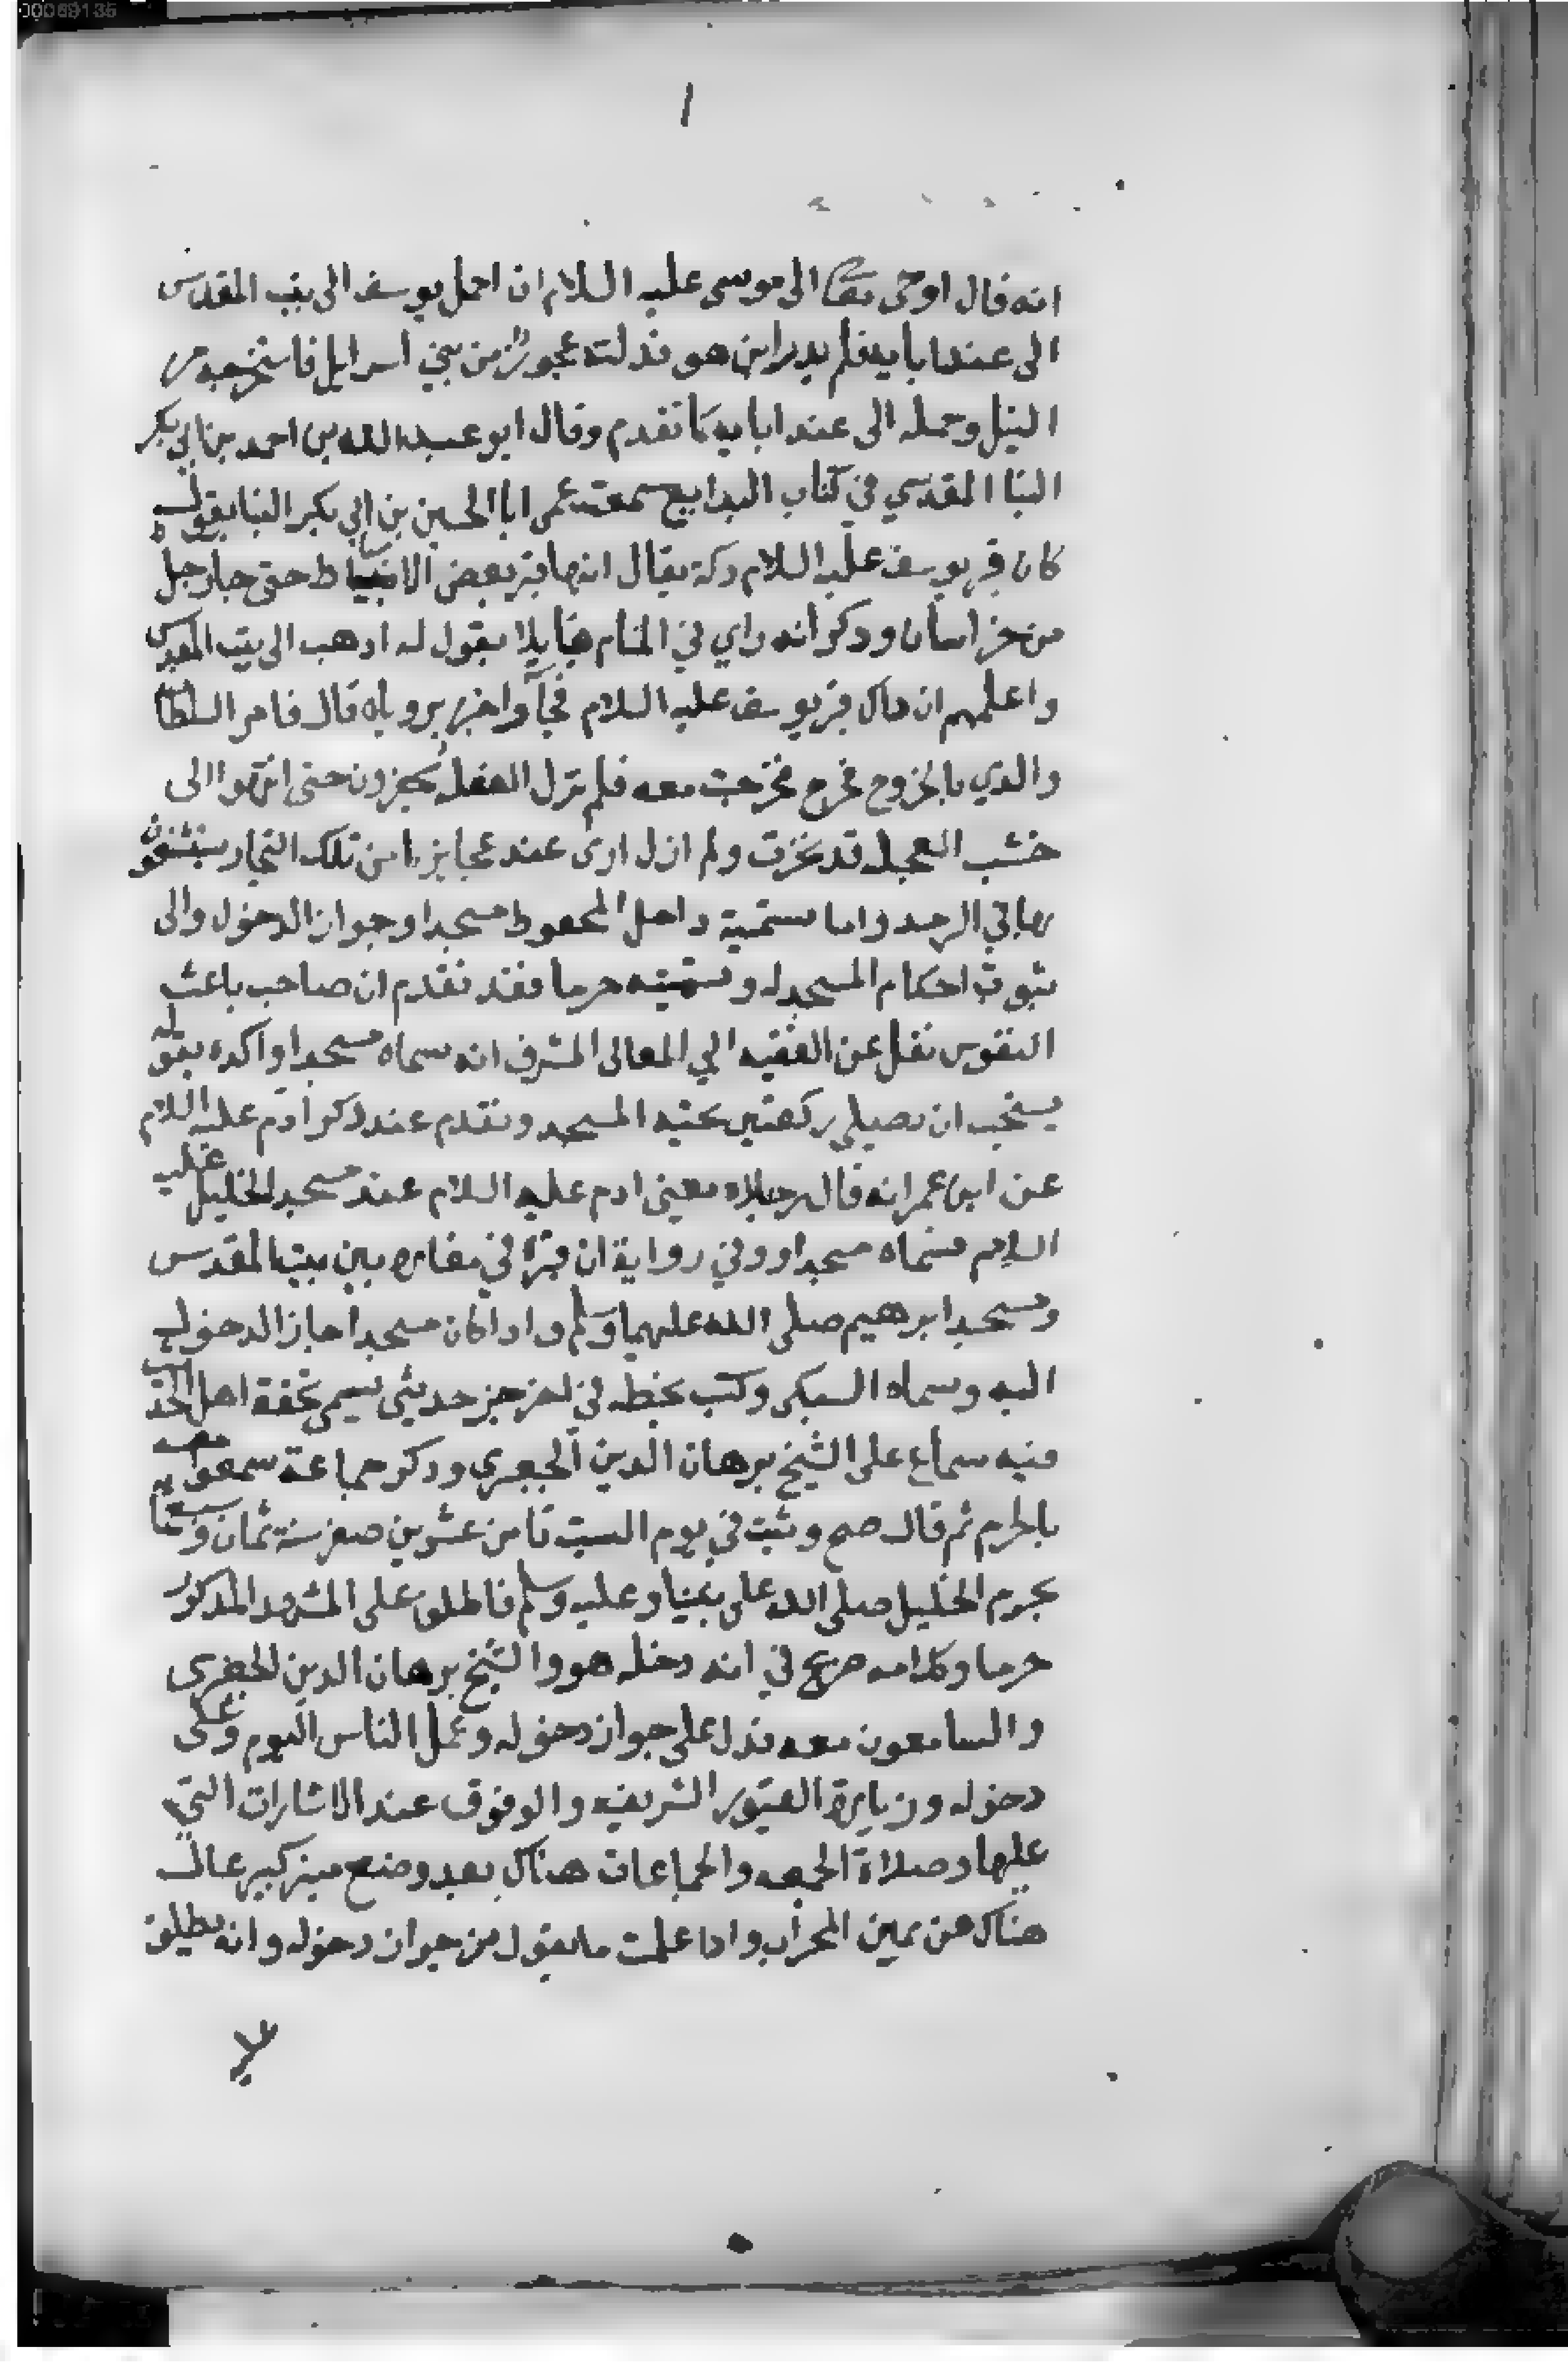 00069135
١
انه قال اوحى الى موسى عليه السلام ان احمل يوسف الى بيت المقدس
الى عند ابايه فلم يدر اين هو فدلته عجوز من بني اسرايل فاستخرجه من
النيل وحمله الى عند ابايه كما تقدم وقال ابو عبد الله بن احمد بن ابي بكر
البنا المقدسي في كتاب البدايع سمعت عمى ابا الحسين بن ابي بكر البنا يقول
كان قبر يوسف عليه السلام دكة يقال انها قبر بعض الاسباط حتى جا رجل
من خراسان وذكر انه راي في المنام قايلا يقول له اذهب الى بيت المقدس
واعلمهم ان ذاك قبر يوسف عليه السلام فجآ واخبر بروياه قال فامر السلطان
والدي بالخروج فخرج فخرجت معه فلم تزل الفعله يحفرون حتى انتهوا الى
خشب العجل قد نخرت ولم ازل ارى عند عجايزنا من تلك النجار يستشفون
بها في الرمد واما تسمية داخل المحوط مسجدا وجواز الدخول والى
ثبوت احكام المسجد له وتسميته حرما فقد تقدم ان صاحب باعث
النفوس نقل عن الفقيه ابي المعالى المشرف انه سماه مسجدا واكده بقوله
يستحب ان يصلي ركعتين تحيه المسجد وتقدم عند ذكر ادم عليه السلام
عن ابن عمر انه قال رجلاه يعنى ادم عليه السلام عند مسجد الخليل عليه
السلام فسماه مسجدا وفي رواية ان قبرا في مغاره بين بيت المقدس
ومسجد ابرهيم صلى الله عليهما وسلم واذا كان مسجدا جاز الدخول
اليه وسماه السبكى وكتب بخطه في اخر جز حديثي يسمى تحفة اهل الحديث
فيه سماع على الشيخ برهان الدين الجعبري وذكر جماعة سمعوا معه
بالحرم ثم قال صح وثبت في يوم السبت ثامن عشرين صفر سنة ثمان وسبعمايه
بحرم الخليل صلى الله على نبينا وعليه وسلم فاطلق على المشهد المذكور
حرما وكلامه صريح في انه دخله هو والشيخ برهان الدين الجعبري
والسامعون معه فدل على جواز دخوله وعمل الناس اليوم على
دخوله وزيارة القبور الشريفه والوقوف عند الاشارات التي
عليها وصلاة الجمعه والجماعات هناك بعد وضع منبر كبير عال
هناك عن يمين المحراب واذا علمت ما يقول من جواز دخوله وانه يطلق